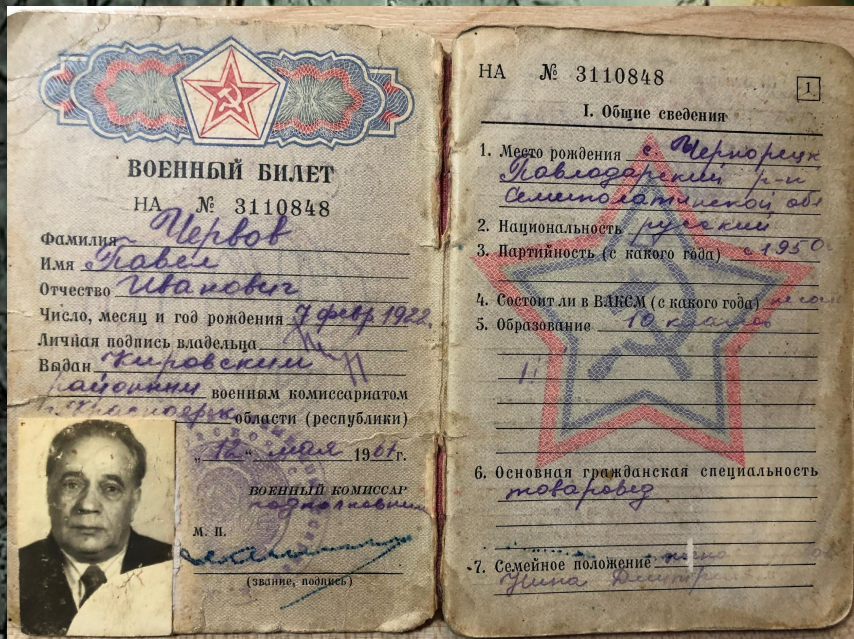 ВОЕННЫЙ БИЛЕТ
НА № 3110848
Фамилия Червов
Имя Павел
Отчество Иванович
Число, месяц и год рождения 7 февр 1922.
Личная подпись владельца
Выдан Кировским
районным военным комиссариатом
г. Красноярск области (республики)
„12“ мая 1961г.
ВОЕННЫЙ КОМИССАР
подполковник
М. П.
(звание, подпись)
НА № 3110848
1
I. Общие сведения
1. Место рождения с. Чернорецк
Павлодарский р-н
Семипалатинской обл
2. Национальность русский
3. Партийность (с какого года) с 1950
4. Состоит ли в ВЛКСМ (с какого года)
5. Образование 10 классов
6. Основная гражданская специальность
товаровед
7. Семейное положение
Нина